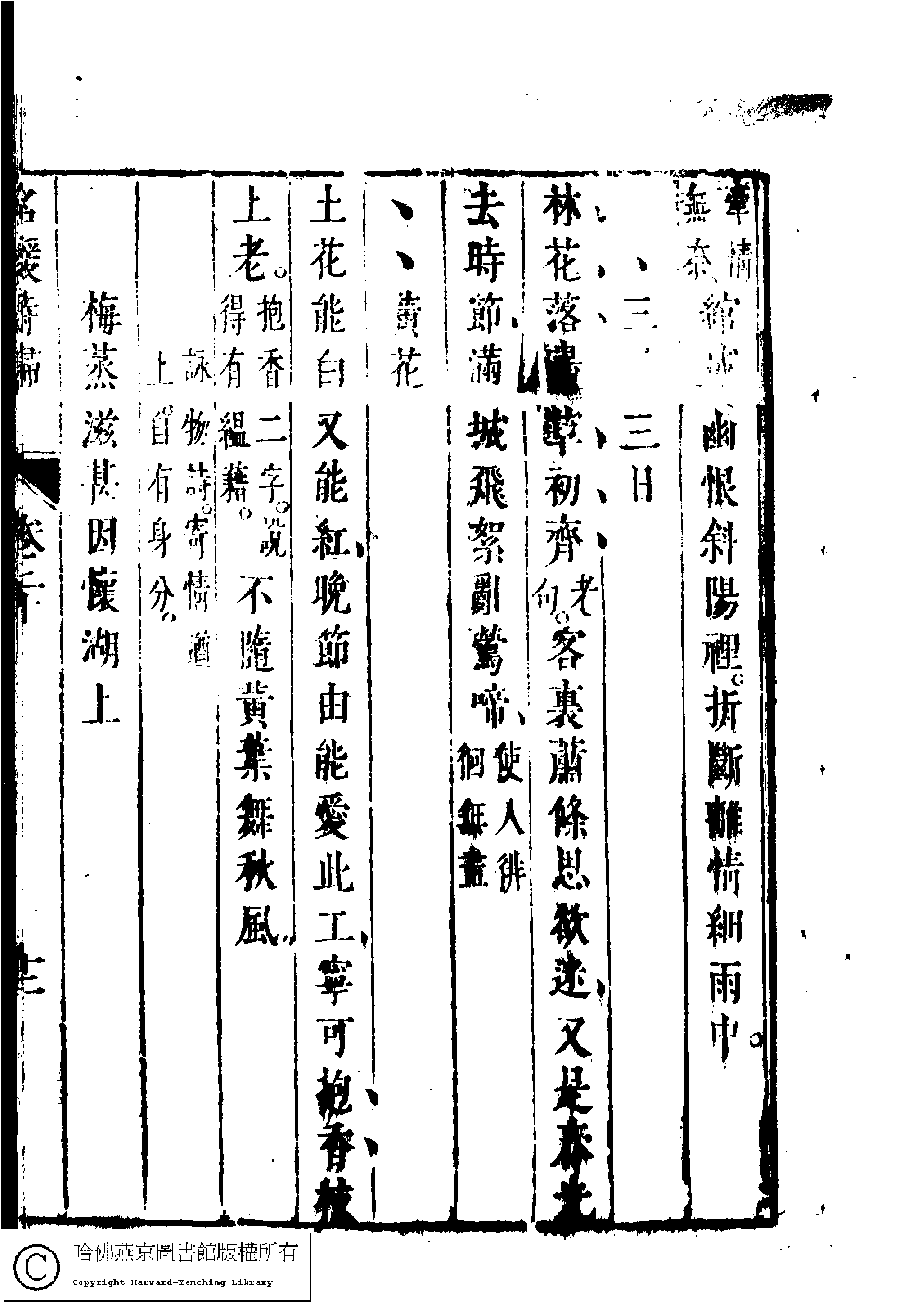 牽情無奈綰成幽恨斜陽裡。折斷離情細雨中。
三 三日
林花落盡草初齊老句。客裏蕭條思欲迷又是春光
去時節滿城飛絮亂鶯啼使人徘徊無盡
黃花
土花能白又能紅晚節由能愛此工寧可抱香枝
上老。抱香二字。說得有韞藉。不隨黃葉舞秋風
詠物詩。寄情遒上。自有身分。
梅蒸滋甚因懷湖上
名媛詩歸 卷二十 十二
哈佛燕京圖書館版權所有
Copyright Harvard-Yenching Library